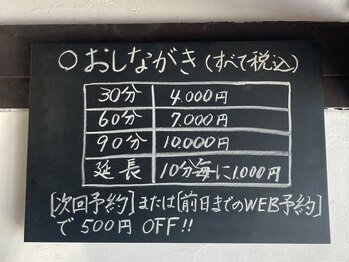 ○ おしながき (すべて税込)
30分 4,000円
60分 7,000円
90分 10,000円
延長 10分毎に1,000円
[次回予約]または[前日までのWEB予約]
で500円 OFF!!